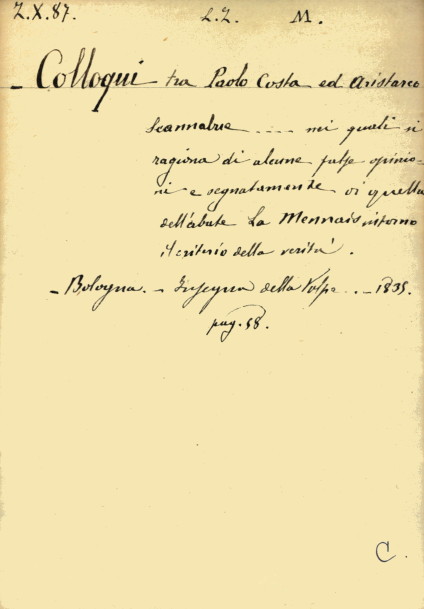 Z.X.87. L.Z. M.
- Colloqui tra Paolo Costa ed Aristarco
Scannabue .... nei quali si
ragiona di alcune false opinio-
ni e segnatamente di quella
dell'abate La Mennais intorno
il criterio della verità.
- Bologna. - Insegna della Volpe. - 1835.
pag. 58.
C.